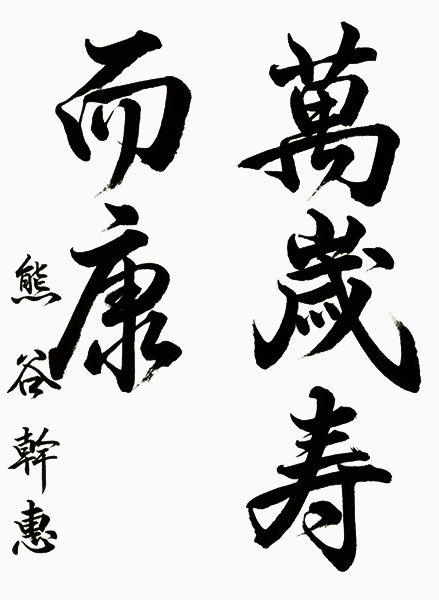 萬歳寿
而康
熊谷幹惠